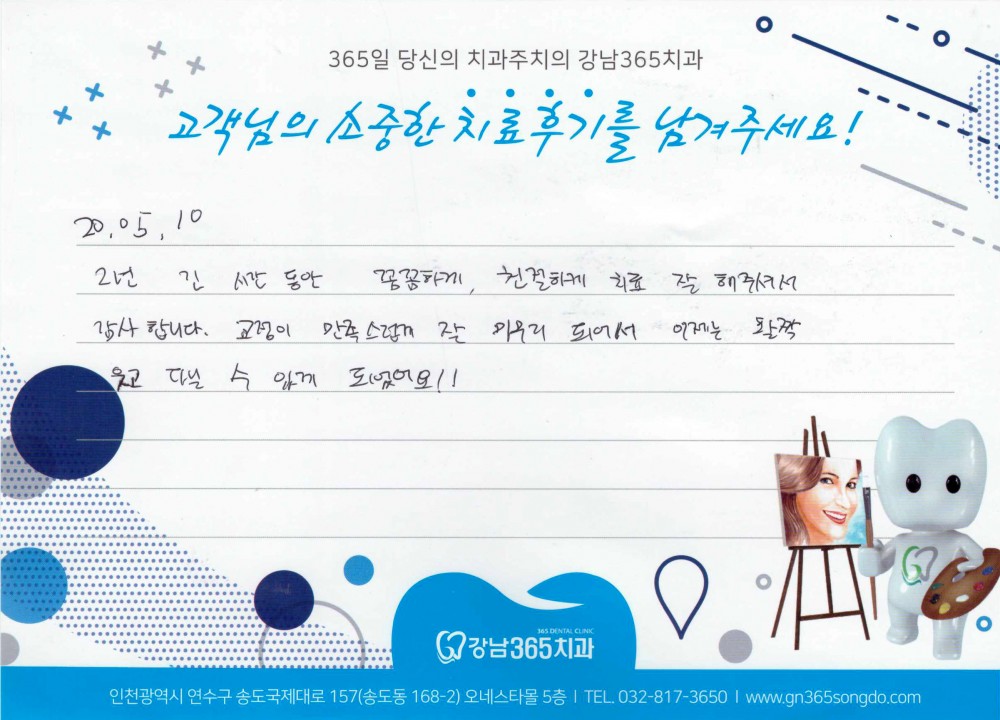 365일 당신의 치과주치의 강남365치과
고객님의 소중한 치료후기를 남겨주세요!
20.05.10
2년 긴 시간 동안 꼼꼼하게, 친절하게 치료 잘 해주셔서
감사 합니다. 교정이 만족스럽게 잘 마무리 되어서 이제는 활짝
웃고 다닐 수 있게 되었어요!!
365 DENTAL CLINIC
강남365치과
인천광역시 연수구 송도국제대로 157(송도동 168-2) 오네스타몰 5층 | TEL. 032-817-3650 | www.gn365songdo.com